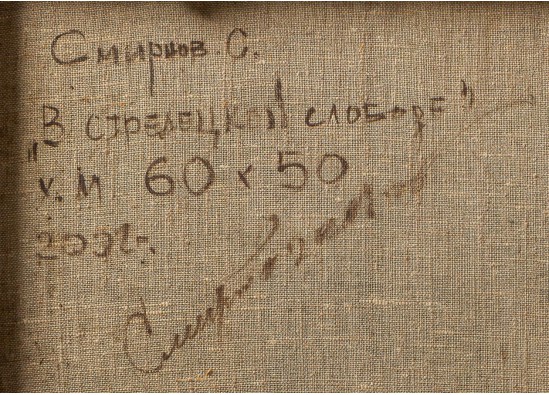 Смирнов С.
"В СТРЕЛЕЦКОЙ СЛОБОДЕ"
х. м 60 х 50
Смирнов